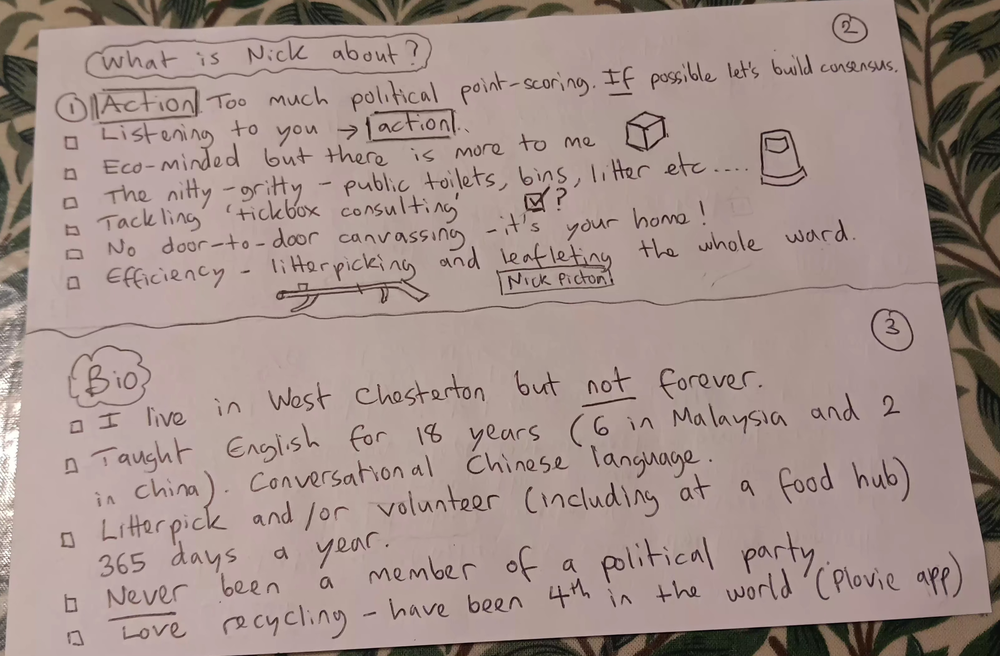 ②
What is Nick about?
① Action Too much political point-scoring. If possible let's build consensus.
□ Listening to you → action..
□ Eco-minded but there is more to me
□ The nitty-gritty - public toilets, bins, litter etc....
□ Tackling 'tickbox consulting' ☑?
□ No door-to-door canvassing - it's your home!
□ Efficiency - litterpicking and leafleting the whole ward.
Nick Picton
③
Bio
□ I live in West Chesterton but not forever.
□ Taught English for 18 years (6 in Malaysia and 2
in China). Conversational Chinese language.
□ Litterpick and/or volunteer (including at a food hub)
365 days a year.
□ Never been a member of a political party.
□ Love recycling - have been 4th in the world (Plovie app)